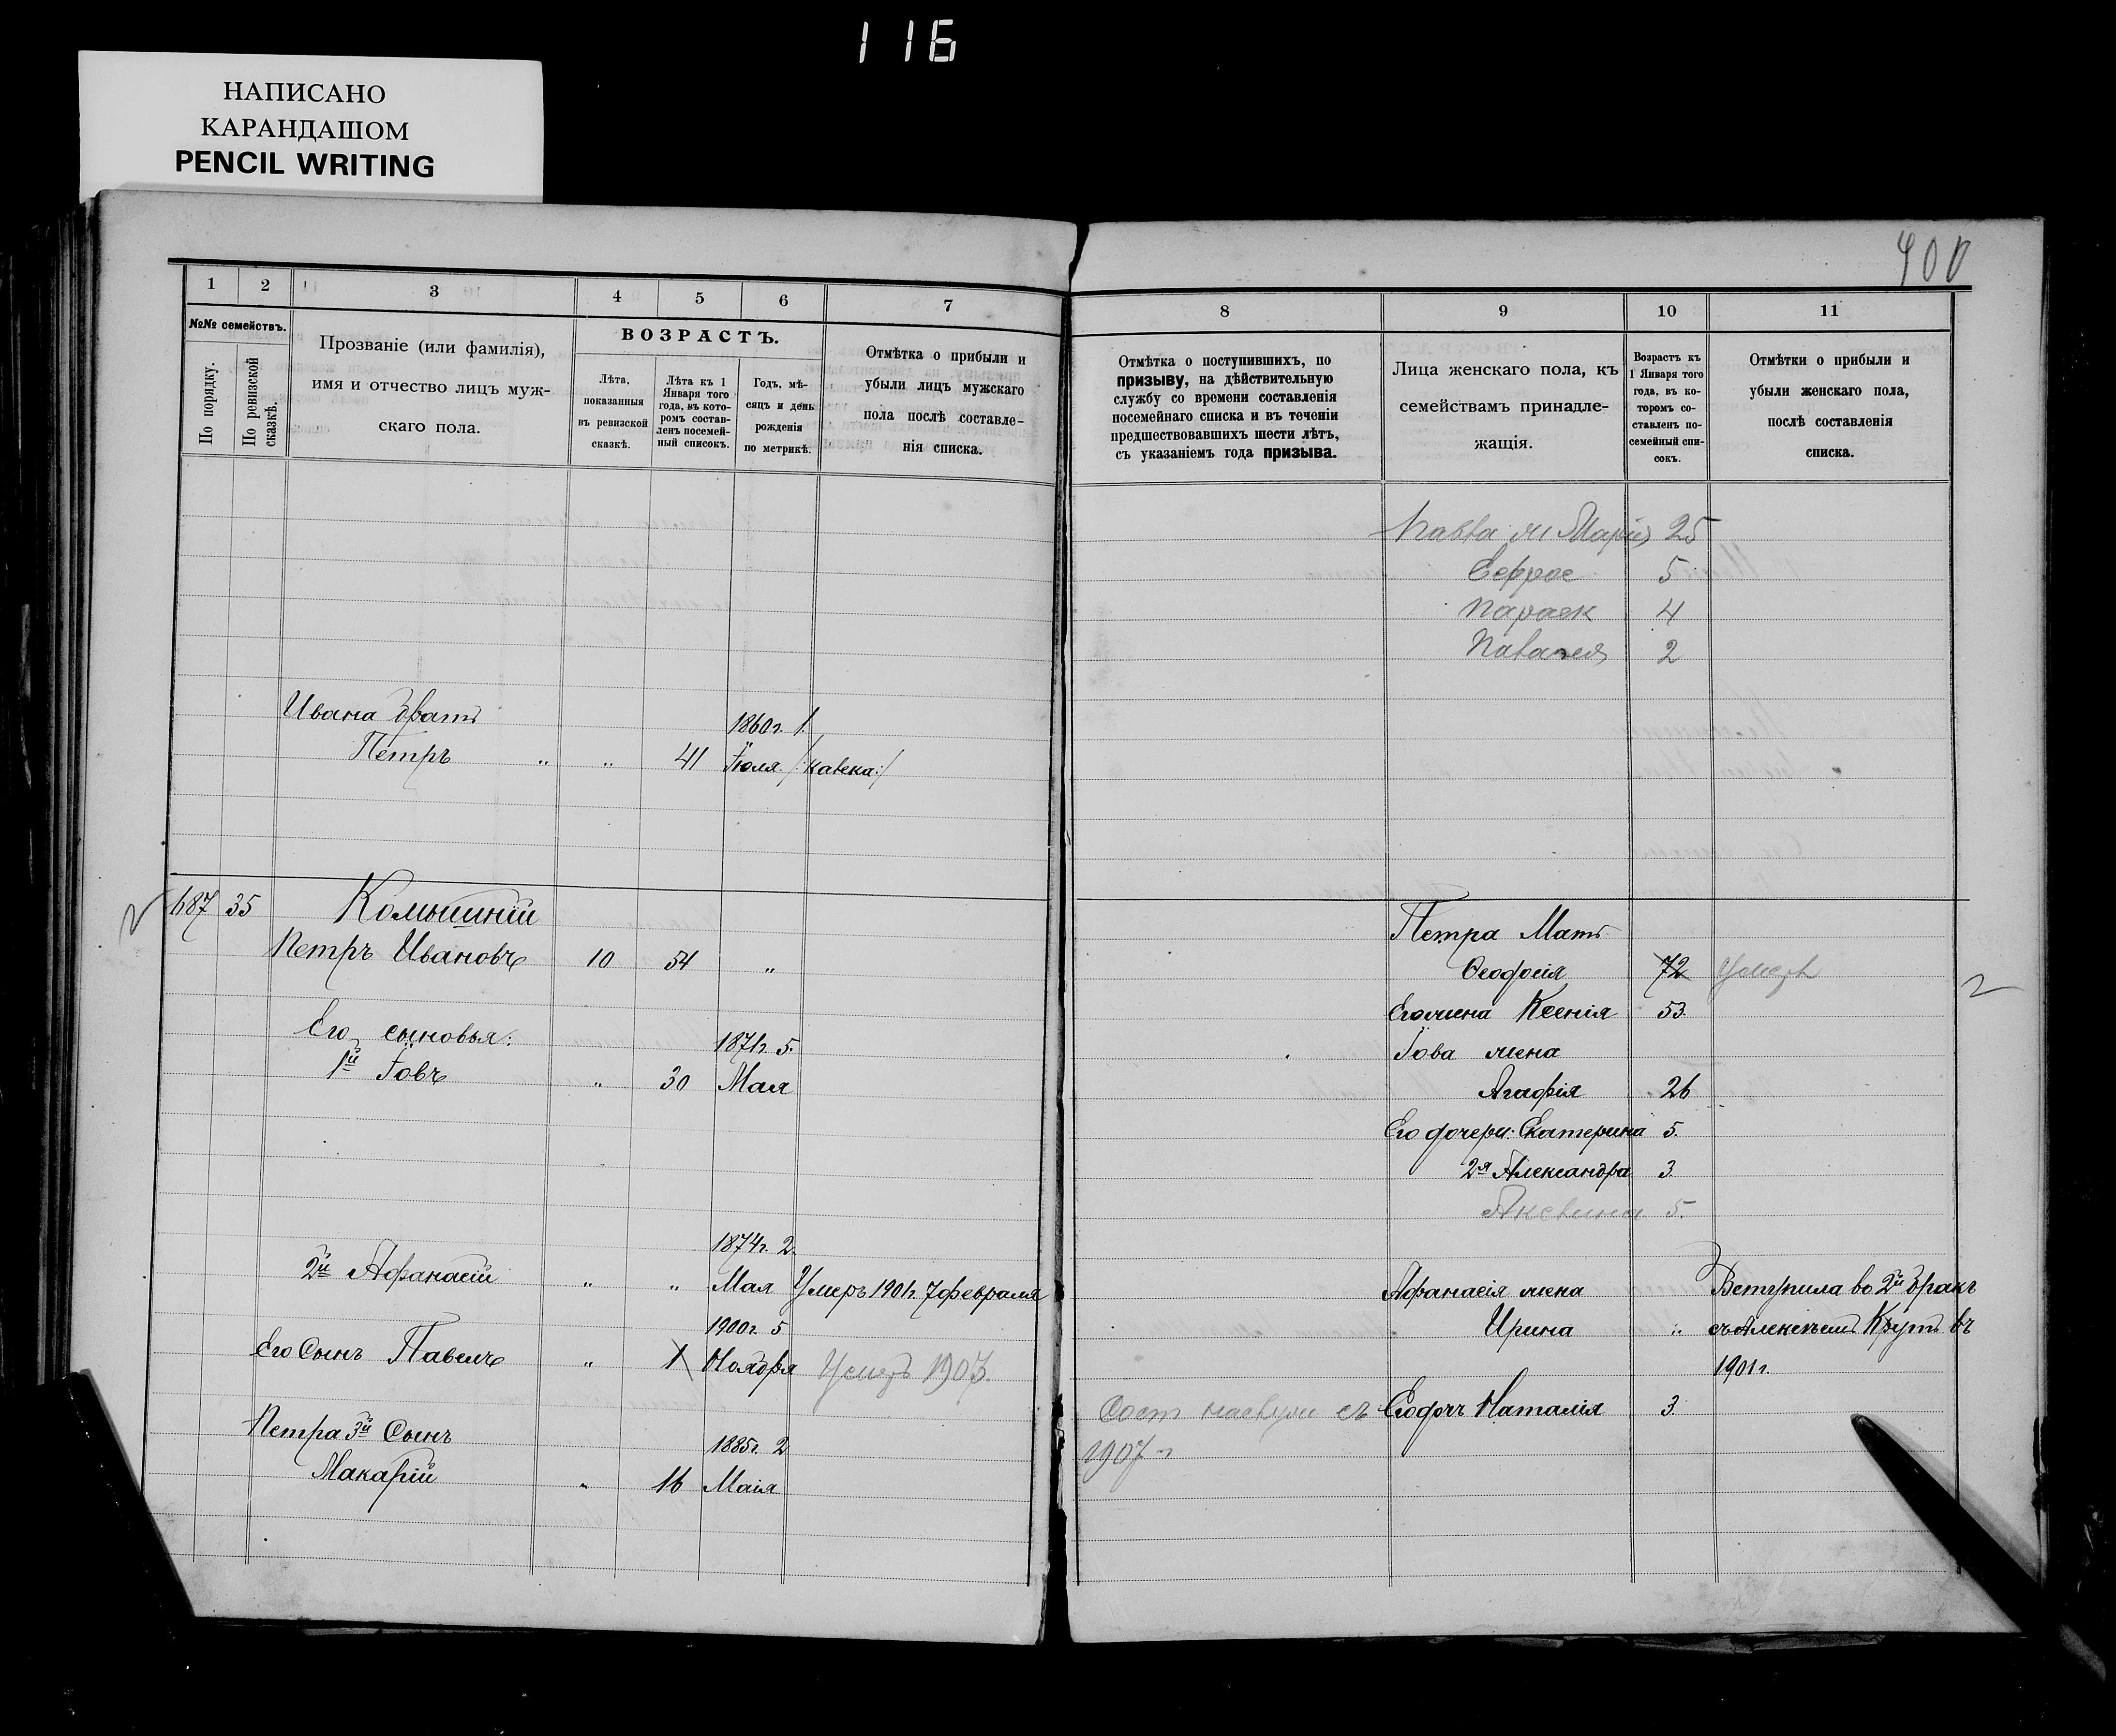 116
НАПИСАНО
КАРАНДАШОМ
PENCIL WRITING
400
1 2 3 4 5 6 7
№№ семействъ.
По порядку.
По ревизской сказкѣ.
Прозваніе (или фамилія),
имя и отчество лицъ муж-
скаго пола.
ВОЗРАСТЪ.
Лѣта,
показанныя
въ ревизской
сказкѣ.
Лѣта къ 1
Января того
года, въ кото-
ромъ состав-
ленъ посемей-
ный списокъ.
Годъ, мѣ-
сяцъ и день
рожденія
по метрикѣ.
Отмѣтка о прибыли и
убыли лицъ мужскаго
пола послѣ составле-
нія списка.
Ивана братъ 1860г. 1
Петръ " " 41 Іюля /:кавека:/
687 35 Комышній
Петръ Ивановъ 10 54 "
Его сыновья: 1871г. 5.
1й Іовъ " 30 Мая
1874г. 2.
2й Афанасій " " Мая Умеръ 1901г. 7 февраля
1900г. 5
Его Сынъ Павелъ " 1 Ноября Умеръ 1903.
Петра 3й Сынъ 1885г. 2
Макарій " 16 Маія
8 9 10 11
Отмѣтка о поступившихъ, по
призыву, на дѣйствительную
службу со времени составленія
посемейнаго списка и въ теченіи
предшествовавшихъ шести лѣтъ,
съ указаніемъ года призыва.
Лица женскаго пола, къ
семействамъ принадле-
жащія.
Возрастъ къ
1 Января того
года, въ ко-
торомъ со-
ставленъ по-
семейный спи-
сокъ.
Отмѣтки о прибыли и
убыли женскаго пола,
послѣ составленія
списка.
Павла ж Марія 25
Ефрос 5
Параск 4
2
Петра Мать
Ѳеодосія 72 Умерла
Его жена Ксенія 53.
Іова жена
Агафія 26
Его дочери: Екатерина 5.
2я Александра 3
5.
Афанасія жена Вступила во 2й бракъ
Ирина " съ Алексѣемъ въ
1901г.
Сост съ Его дочь Наталія 3
1907 г